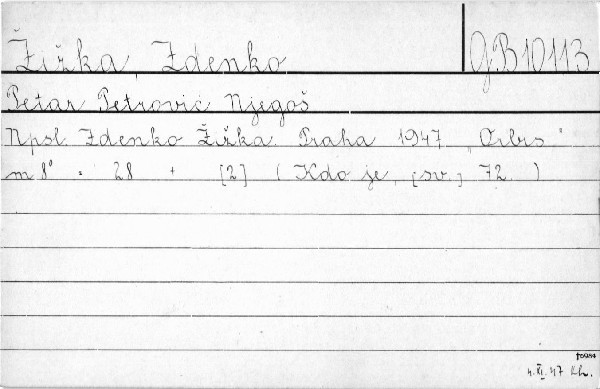 Žižka, Zdenko
GB 10113
Petar Petrović Njegoš
Npsl. Zdenko Žižka. Praha 1947. „Orbis."
m 8° = 28 + [2] (Kdo je, [sv.] 72.)
4. XI. 47 Kh.